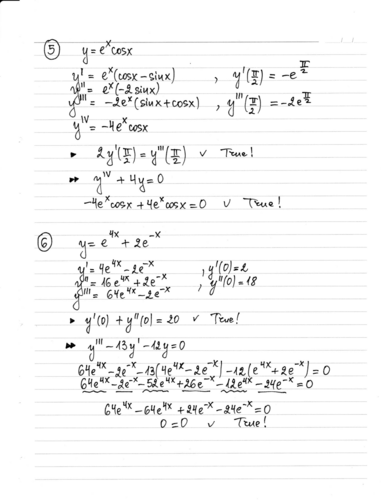 ⑤ y = eˣcosx
y' = eˣ(cosx − sinx) , y'(π/2) = −e^(π/2)
y'' = eˣ(−2sinx)
y''' = −2eˣ(sinx + cosx) , y'''(π/2) = −2e^(π/2)
y^IV = −4eˣcosx
▸ 2y'(π/2) = y'''(π/2) ✓ True!
▸▸ y^IV + 4y = 0
−4eˣcosx + 4eˣcosx = 0 ✓ True!
⑥ y = e^4x + 2e^−x
y' = 4e^4x − 2e^−x , y'(0) = 2
y'' = 16e^4x + 2e^−x , y''(0) = 18
y''' = 64e^4x − 2e^−x
▸ y'(0) + y''(0) = 20 ✓ True!
▸▸ y''' − 13y' − 12y = 0
64e^4x − 2e^−x − 13(4e^4x − 2e^−x) − 12(e^4x + 2e^−x) = 0
64e^4x − 2e^−x − 52e^4x + 26e^−x − 12e^4x − 24e^−x = 0
64e^4x − 64e^4x + 24e^−x − 24e^−x = 0
0 = 0 ✓ True!